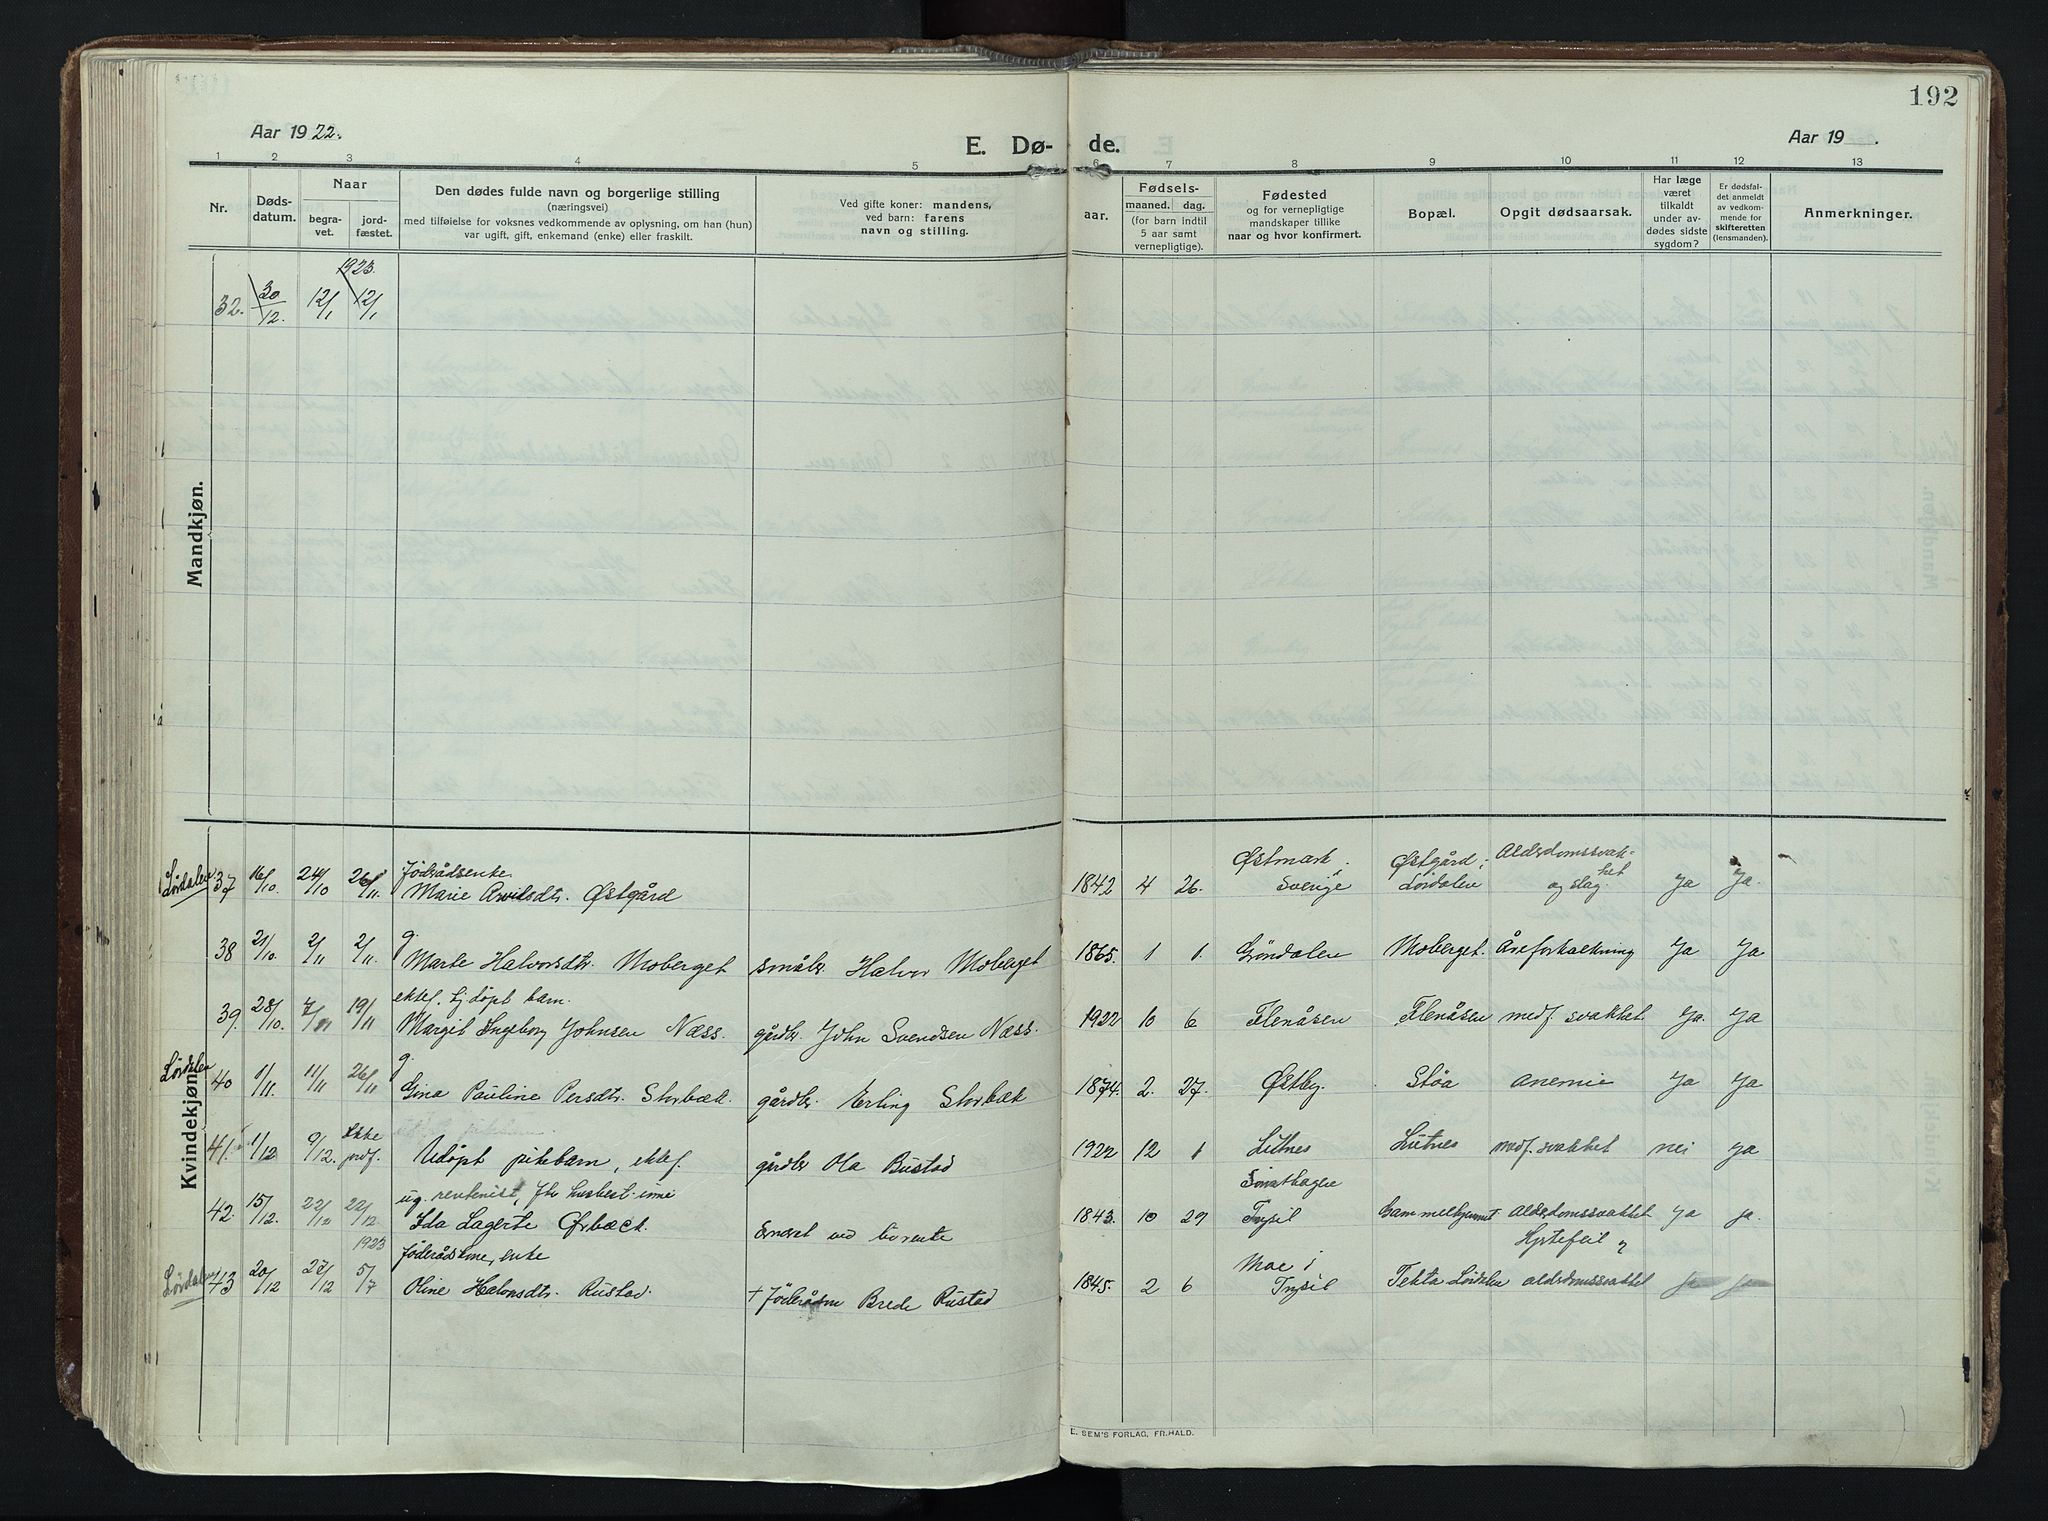 192
Aar 1922.
E. Dø-
de.
Aar 19 .
1 2 3 4 5 6 7 8 9 10 11 12 13
Nr.
Døds-
datum.
Naar
begra-
vet.
jord-
fæstet.
Den dødes fulde navn og borgerlige stilling
(næringsvei)
med tilføielse for voksnes vedkommende av oplysning, om han (hun)
var ugift, gift, enkemand (enke) eller fraskilt.
Ved gifte koner: mandens,
ved barn: farens
navn og stilling.
Fødsels-
aar.
maaned. dag.
(for barn indtil
5 aar samt
vernepligtige).
Fødested
og for vernepligtige
mandskaper tillike
naar og hvor konfirmert.
Bopæl.
Opgit dødsaarsak.
Har læge
været
tilkaldt
under av-
dødes sidste
sygdom?
Er dødsfal-
det anmeldt
av vedkom-
mende for
skifteretten
(lensmanden).
Anmerkninger.
Mandkjøn.
1923.
32. 30/12. 12/1 12/1
Kvindekjøn.
Føderådsenke Østmark. Østgård; Alderdomssvak-
Lørdalen 37 16/10. 24/10 26/11. Marie Arvidsdtr. Østgård 1842 4 26. Sverige Lørdalen het og slag. Ja Ja.
g.
38 21/10. 2/11 2/11. Marte Halvorsdtr. Moberget småbr. Halvor Moberget 1865. 1 1. Grøndalen Moberget. Åreforkalkning Ja Ja
ektef. hj.døpt barn.
39. 28/10. 7/11 19/11 Margit Ingeborg Johnsen Næss. gårdbr. John Svendsen Næss. 1922 10 6 Flenåsen Flenåsen medf. svakhet. Ja. Ja
g.
Lørdalen 40 1/11. 11/11 26/11 Gina Pauline Persdtr. Storbæk. gårdbr. Erling Storbæk 1874. 2. 27. Østby. Støa anemie Ja Ja
41. 1/12 9/12. Ikke jordf. Udøpt pikebarn, ektef. gårdbr Ola Bustad 1922 12 1 Lutnes Lutnes medf. svakhet nei ja
ug. rentenist,
42. 15/12. 22/12 22/12 Ida Lagerte Ørbæck. Ernæret ved livrente 1843. 10 29 Trysil Gammelhjemmet Alderdomssvakhet Ja ja.
Hjertefeil
1923
føderådskone, enke Moe i
Lørdalen 43 20/12 27/12 5/7 Oline Halvorsdtr. Rustad. + Føderådsm Brede Rustad 1845. 2 6 Trysil Tekta Lørdalen alderdomssvakhet Ja Ja
E. SEM'S FORLAG, FR.HALD.